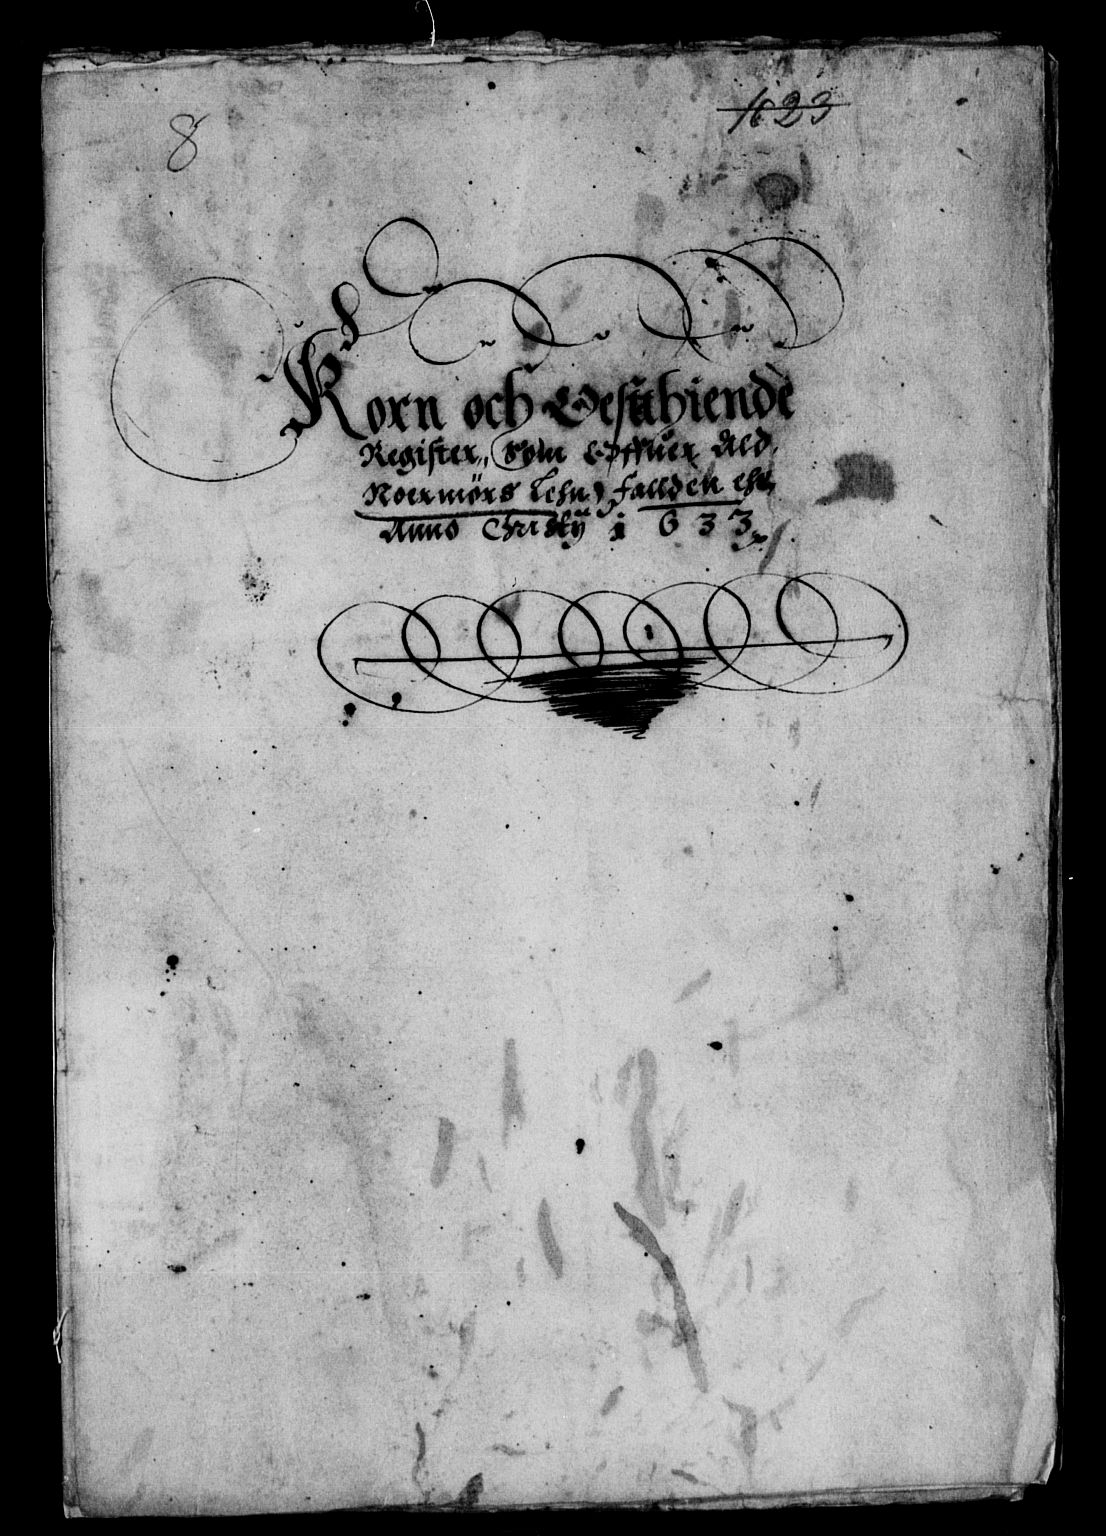 8
1623
Korn och Qveschiende
Register, Som Offuer Ald
Noermörs Lehn, fallden ehr,
Anno Christÿ 1633